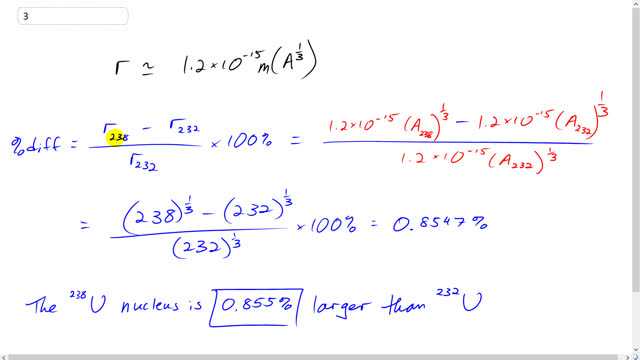 3
r ≃ 1.2×10⁻¹⁵ m (A^{1/3})
% diff = (r₂₃₈ − r₂₃₂) / r₂₃₂ × 100% = (1.2×10⁻¹⁵ (A₂₃₈)^{1/3} − 1.2×10⁻¹⁵ (A₂₃₂)^{1/3}) / (1.2×10⁻¹⁵ (A₂₃₂)^{1/3})
= ((238)^{1/3} − (232)^{1/3}) / (232)^{1/3} × 100% = 0.8547%
The ²³⁸U nucleus is 0.855% larger than ²³²U